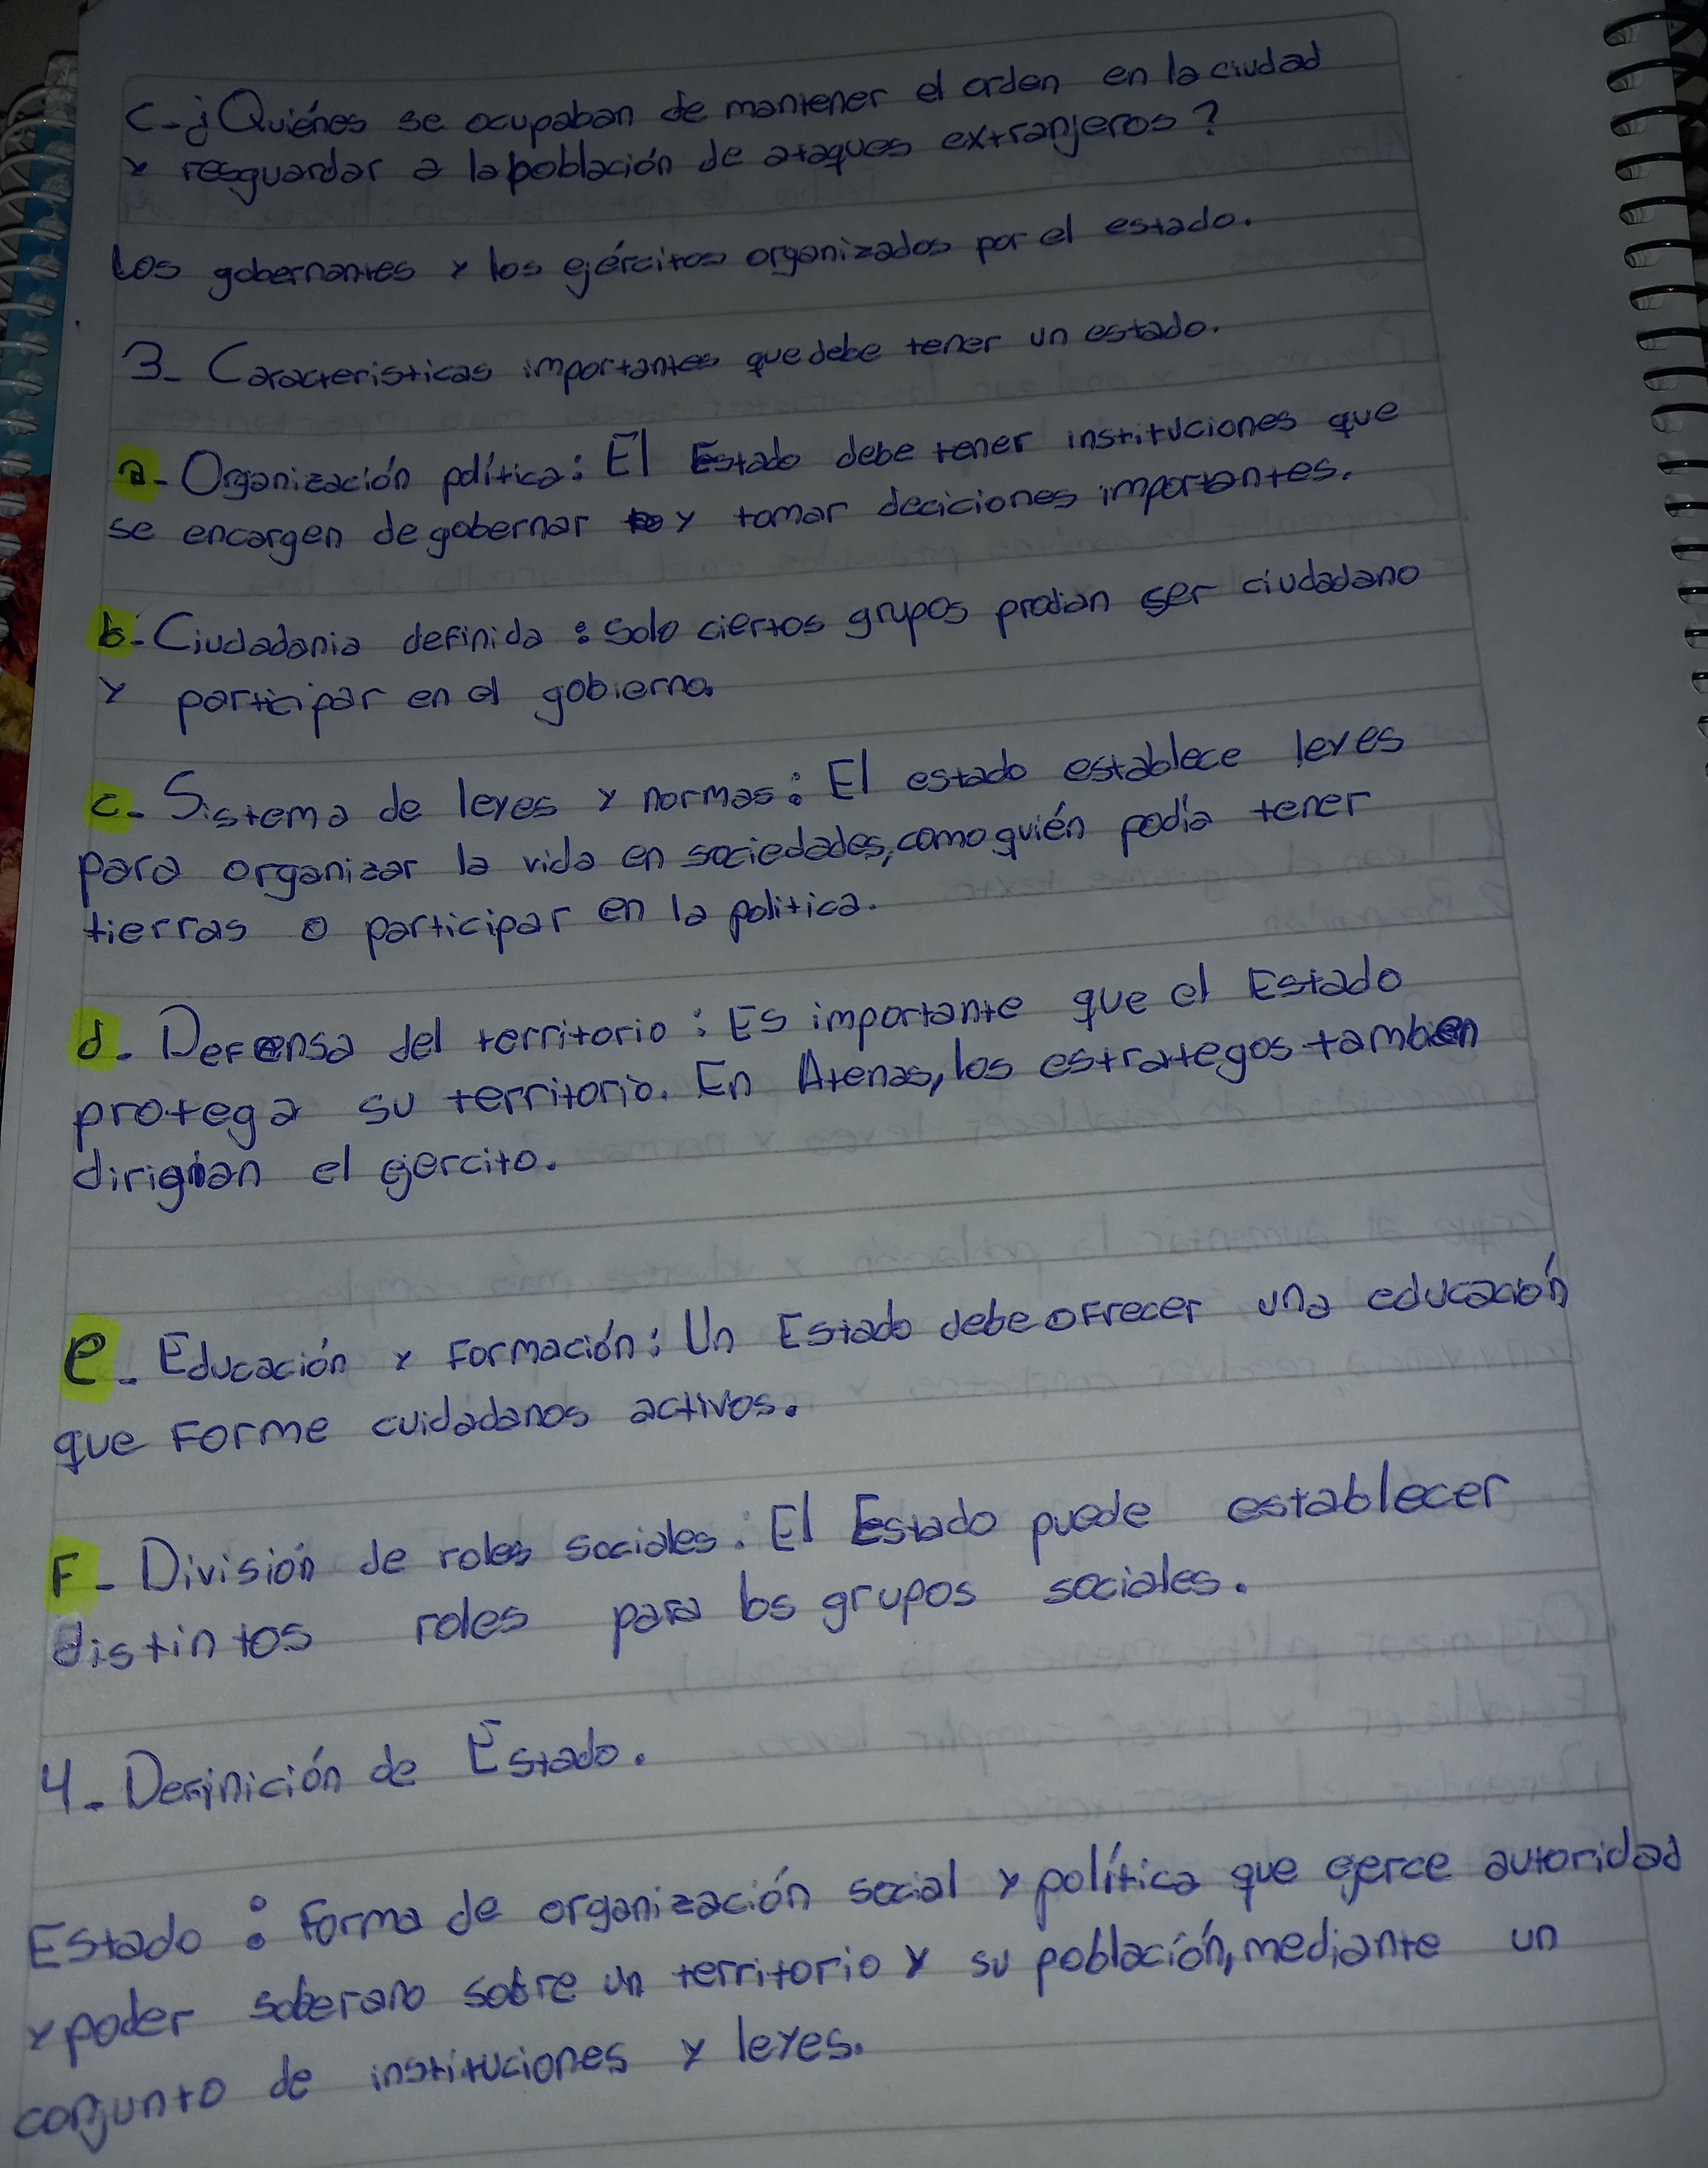 C-¿Quiénes se ocupaban de mantener el orden en la ciudad
y resguardar a la población de ataques extranjeros?
Los gobernantes y los ejércitos organizados por el estado.
3- Caracteristicas importantes que debe tener un estado.
a- Organización política: El Estado debe tener instituciones que
se encargen de gobernar y tomar deciciones importantes.
b- Ciudadania definida: Solo ciertos grupos prodian ser ciudadano
y participar en el gobierno.
c- Sistema de leyes y normas: El estado establece leyes
para organizar la vida en sociedades, como quién podía tener
tierras o participar en la politica.
d. Defensa del territorio: Es importante que el Estado
protega su territorio. En Atenas, los estrategos tambien
dirigian el ejercito.
e- Educación y Formación: Un Estado debe ofrecer una educación
que Forme cuidadanos activos.
F- División de roles sociales: El Estado puede establecer
distintos roles para los grupos sociales.
4- Definición de Estado.
Estado: Forma de organización social y política que ejerce autoridad
y poder soberano sobre un territorio y su población, mediante un
conjunto de instituciones y leyes.